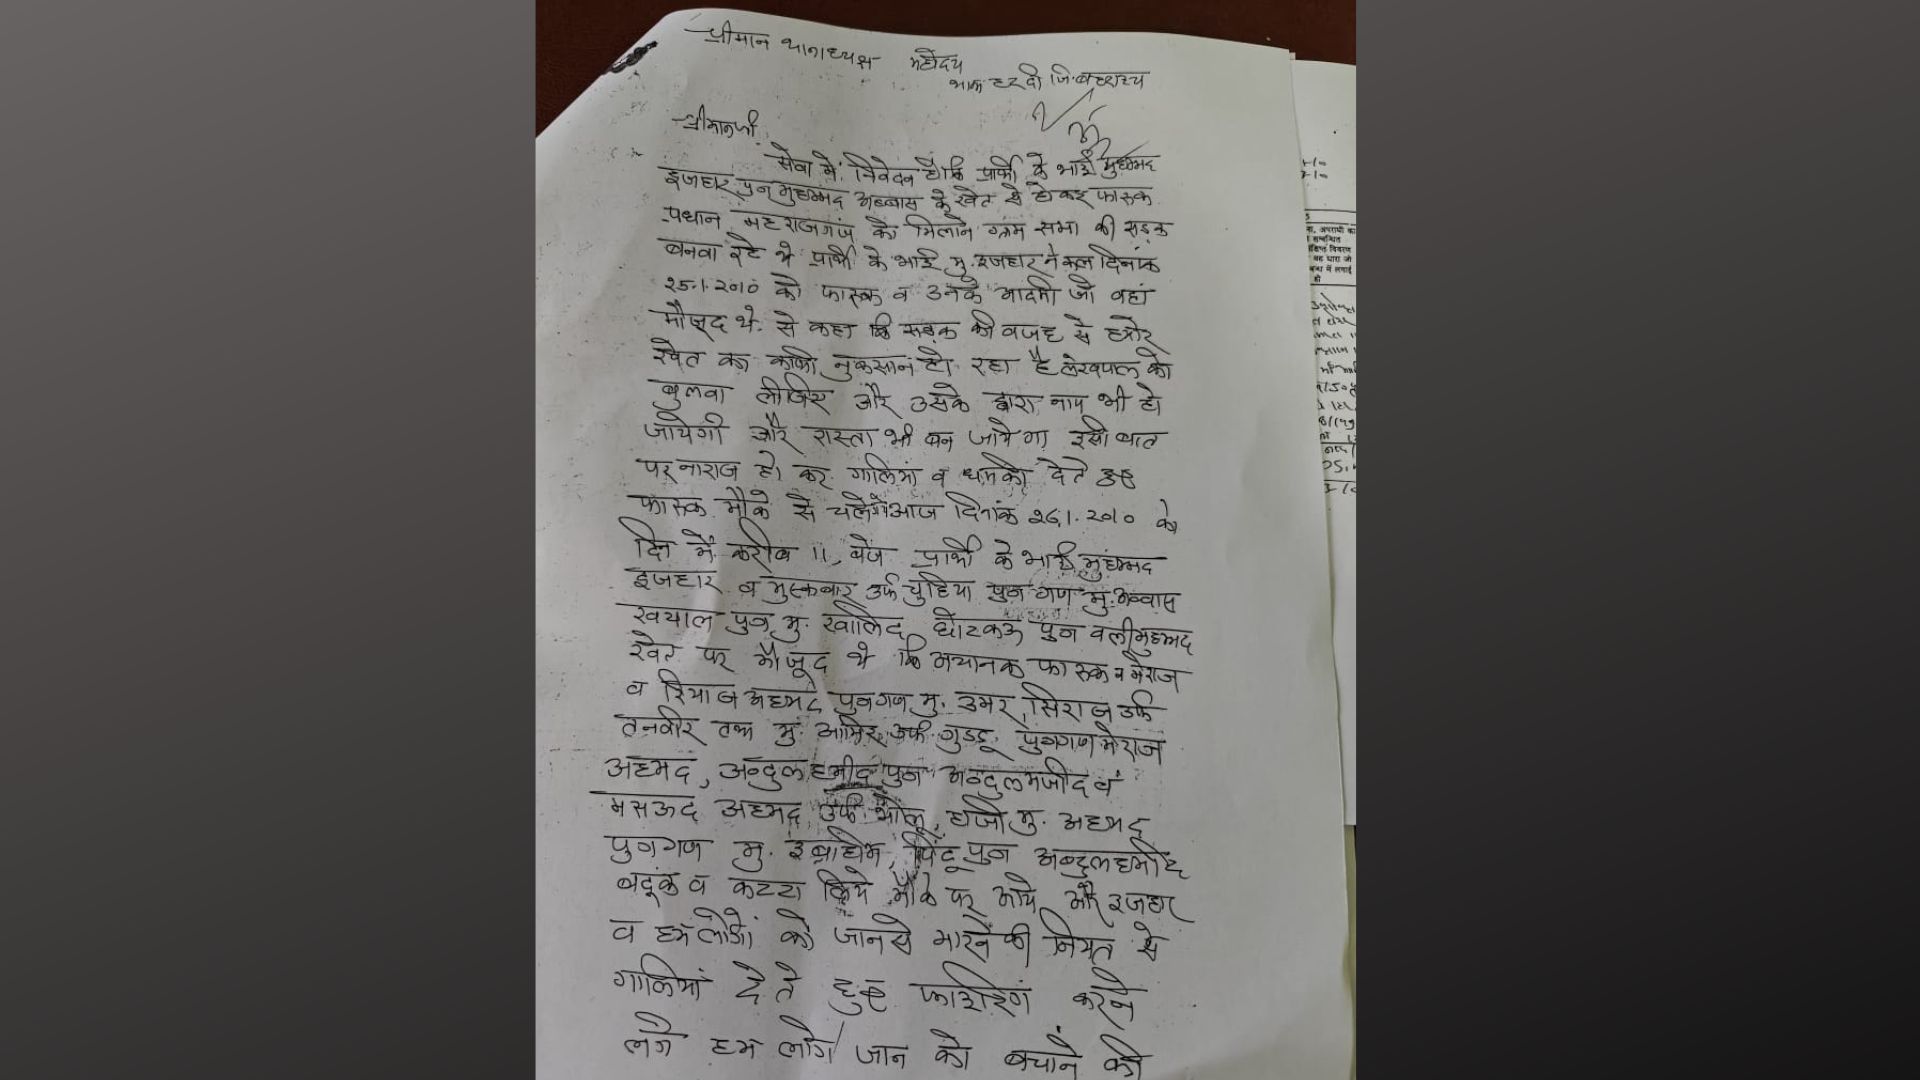 श्रीमान थानाध्यक्ष महोदय
थाना हरदी जि. बहराइच
श्रीमानजी
सेवा में, निवेदन है कि प्रार्थी के भाई मुहम्मद
इजहार पुत्र मुहम्मद अब्बास के खेत से होकर फारूक
प्रधान महराजगंज को मिलाने ग्राम सभा की सड़क
बनवा रहे थे प्रार्थी के भाई मु. इजहार ने कल दिनांक
25.1.2010 को फारूक व उनके आदमी जो वहां
मौजूद थे से कहा कि सड़क की वजह से हमारे
खेत का काफी नुकसान हो रहा है लेखपाल को
बुलवा लीजिए और उसके द्वारा नाप भी हो
जायेगी और रास्ता भी बन जायेगा इसी बात
पर नाराज हो कर गालियां व धमकी देते हुए
फारूक मौके से चलेगये आज दिनांक 26.1.2010 को
दिन में करीब 11, बजे प्रार्थी के भाई मुहम्मद
इजहार व मुस्कबार उर्फ चुहिया पुत्र गण मु. अब्बास
खयाल पुत्र मु. खालिद, छोटकऊ पुत्र वलीमुहम्मद
खेत पर मौजूद थे कि अचानक फारूक व मेराज
व रियाज अहमद पुत्रगण मु. उमर, सिराज उर्फ
तनवीर तथा मु. आमिर उर्फ गुडडू पुत्रगण मेराज
अहमद, अब्दुल हमीद पुत्र अब्दुल मजीद व
मसऊद अहमद उर्फ भोलू, हाजी मु. अहमद
पुत्रगण मु. इब्राहीम, पिंटू पुत्र अब्दुल हमीद
बदूक व कटटा लिये मौके पर आये और इजहार
व हम लोगों को जान से मारने की नियत से
गालियां देते हुए फाइरिंग करने
लगे हम लोग जान को बचाने की
अपराधी का
सम्बन्धित
विवरण
वह धारा जो
में लगाई
हो